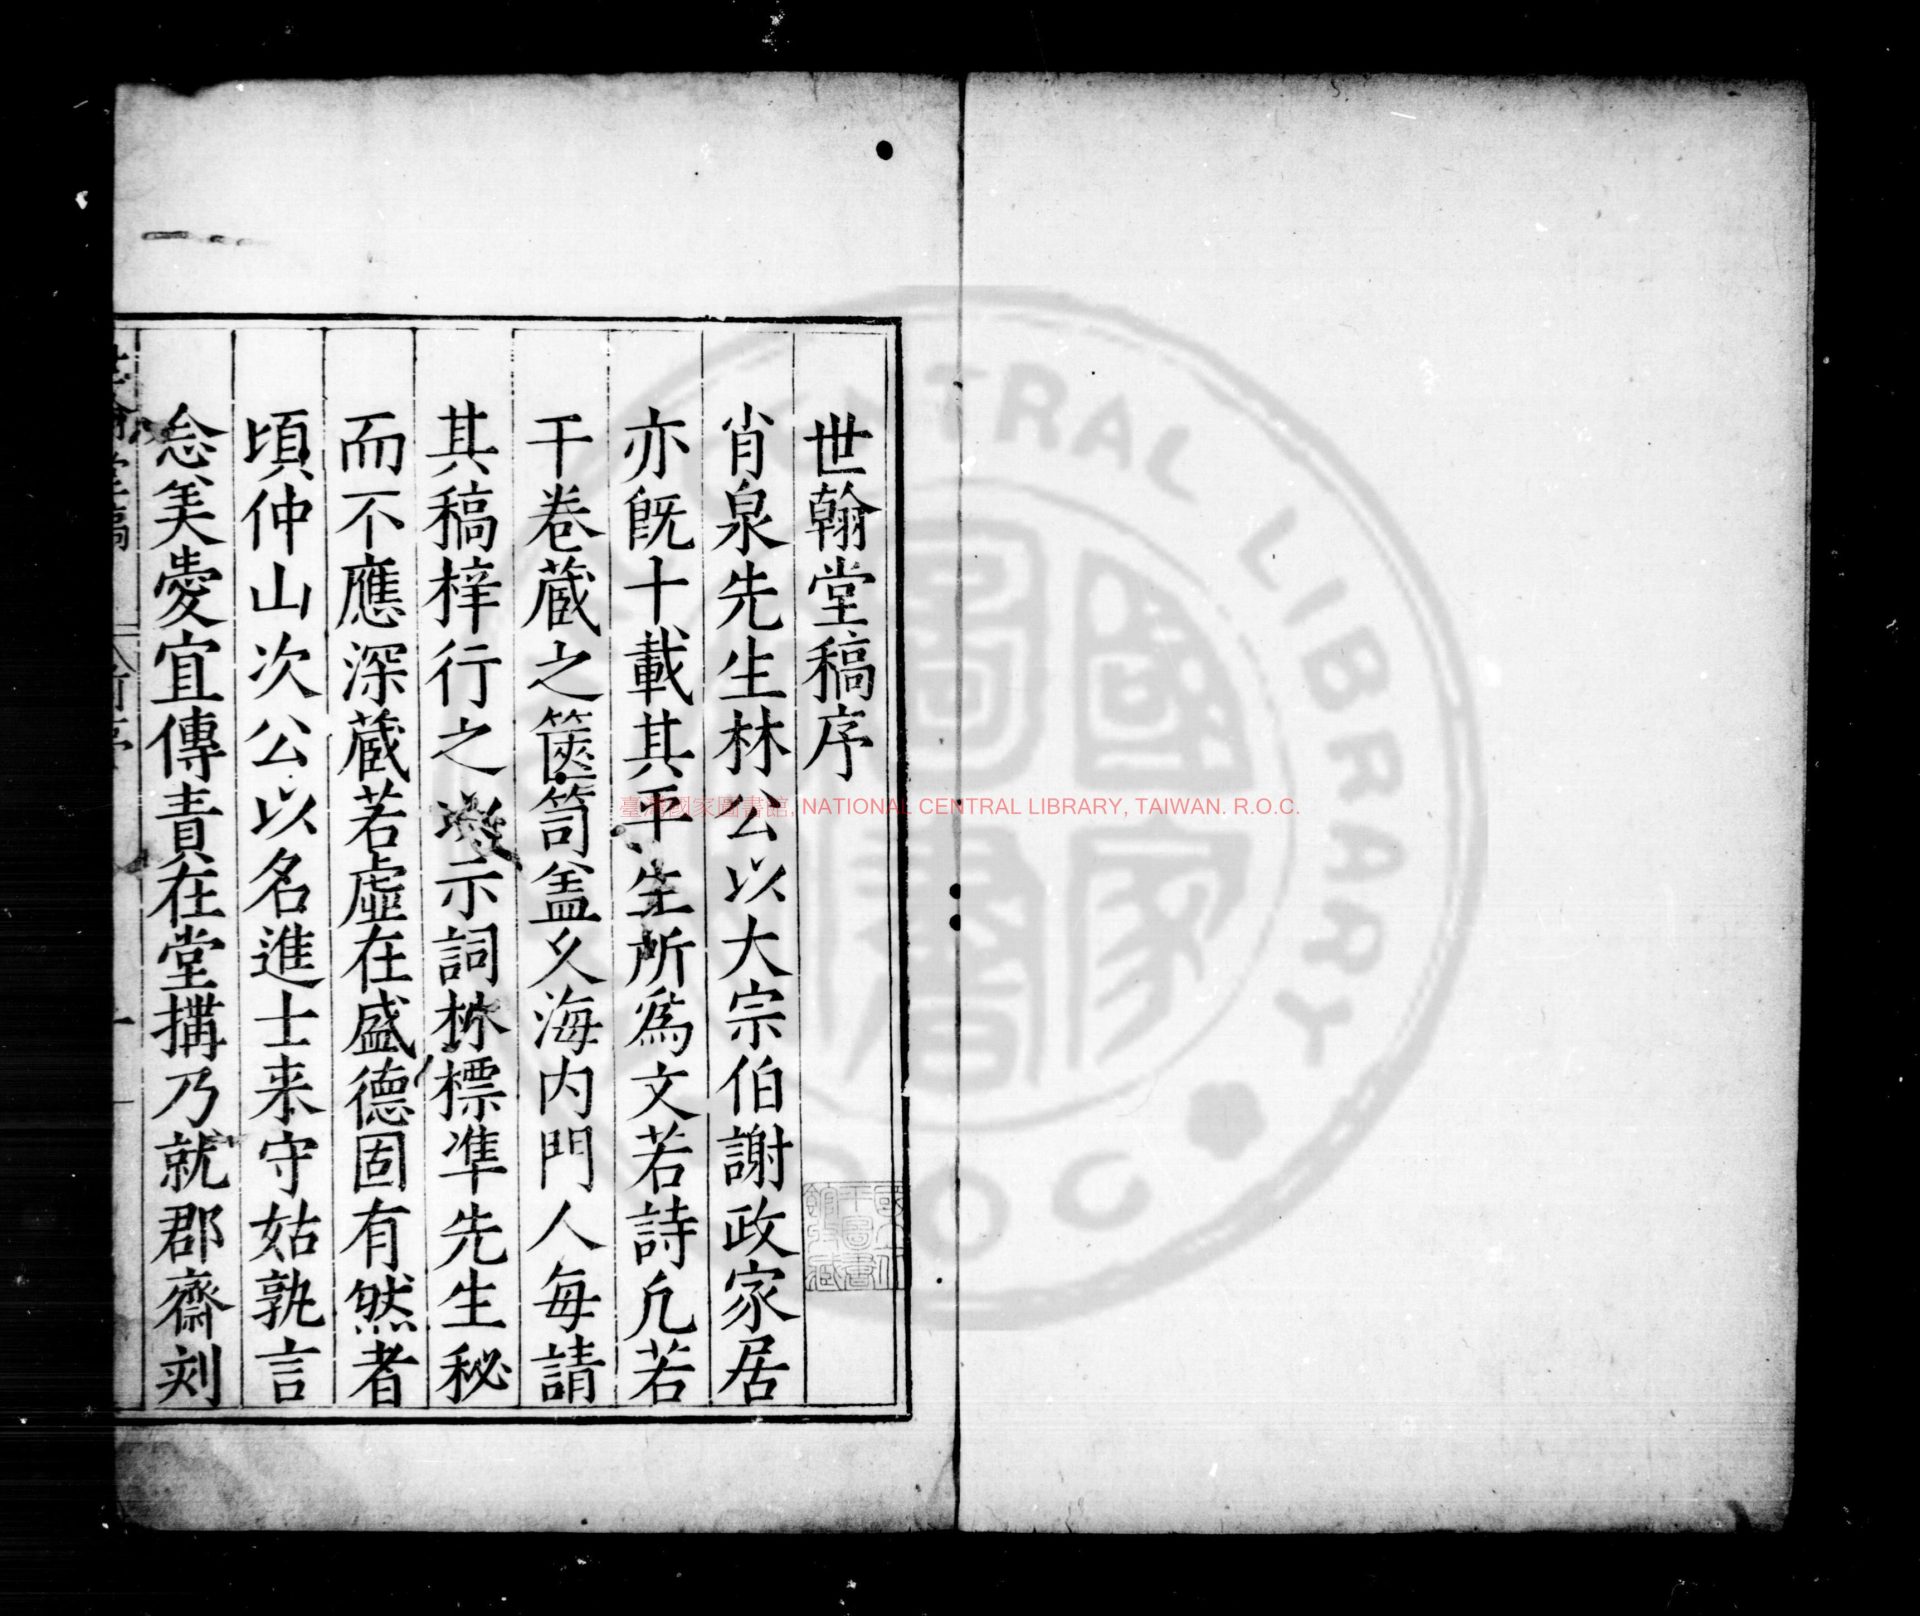 世翰堂稿序
肖泉先生林公以大宗伯謝政家居
亦旣十載其平生所爲文若詩凢若
干卷蔵之篋笥盖久海内門人毎請
其稿梓行之以示詞林標準先生秘
而不應深蔵若虛在盛德固有然者
頃仲山次公以名進士来守姑孰言
念羙愛宜傳責在堂搆乃就郡齋刻
臺灣國家圖書館, NATIONAL CENTRAL LIBRARY, TAIWAN. R.O.C.
CENTRAL LIBRARY
R.O.C
國家圖書